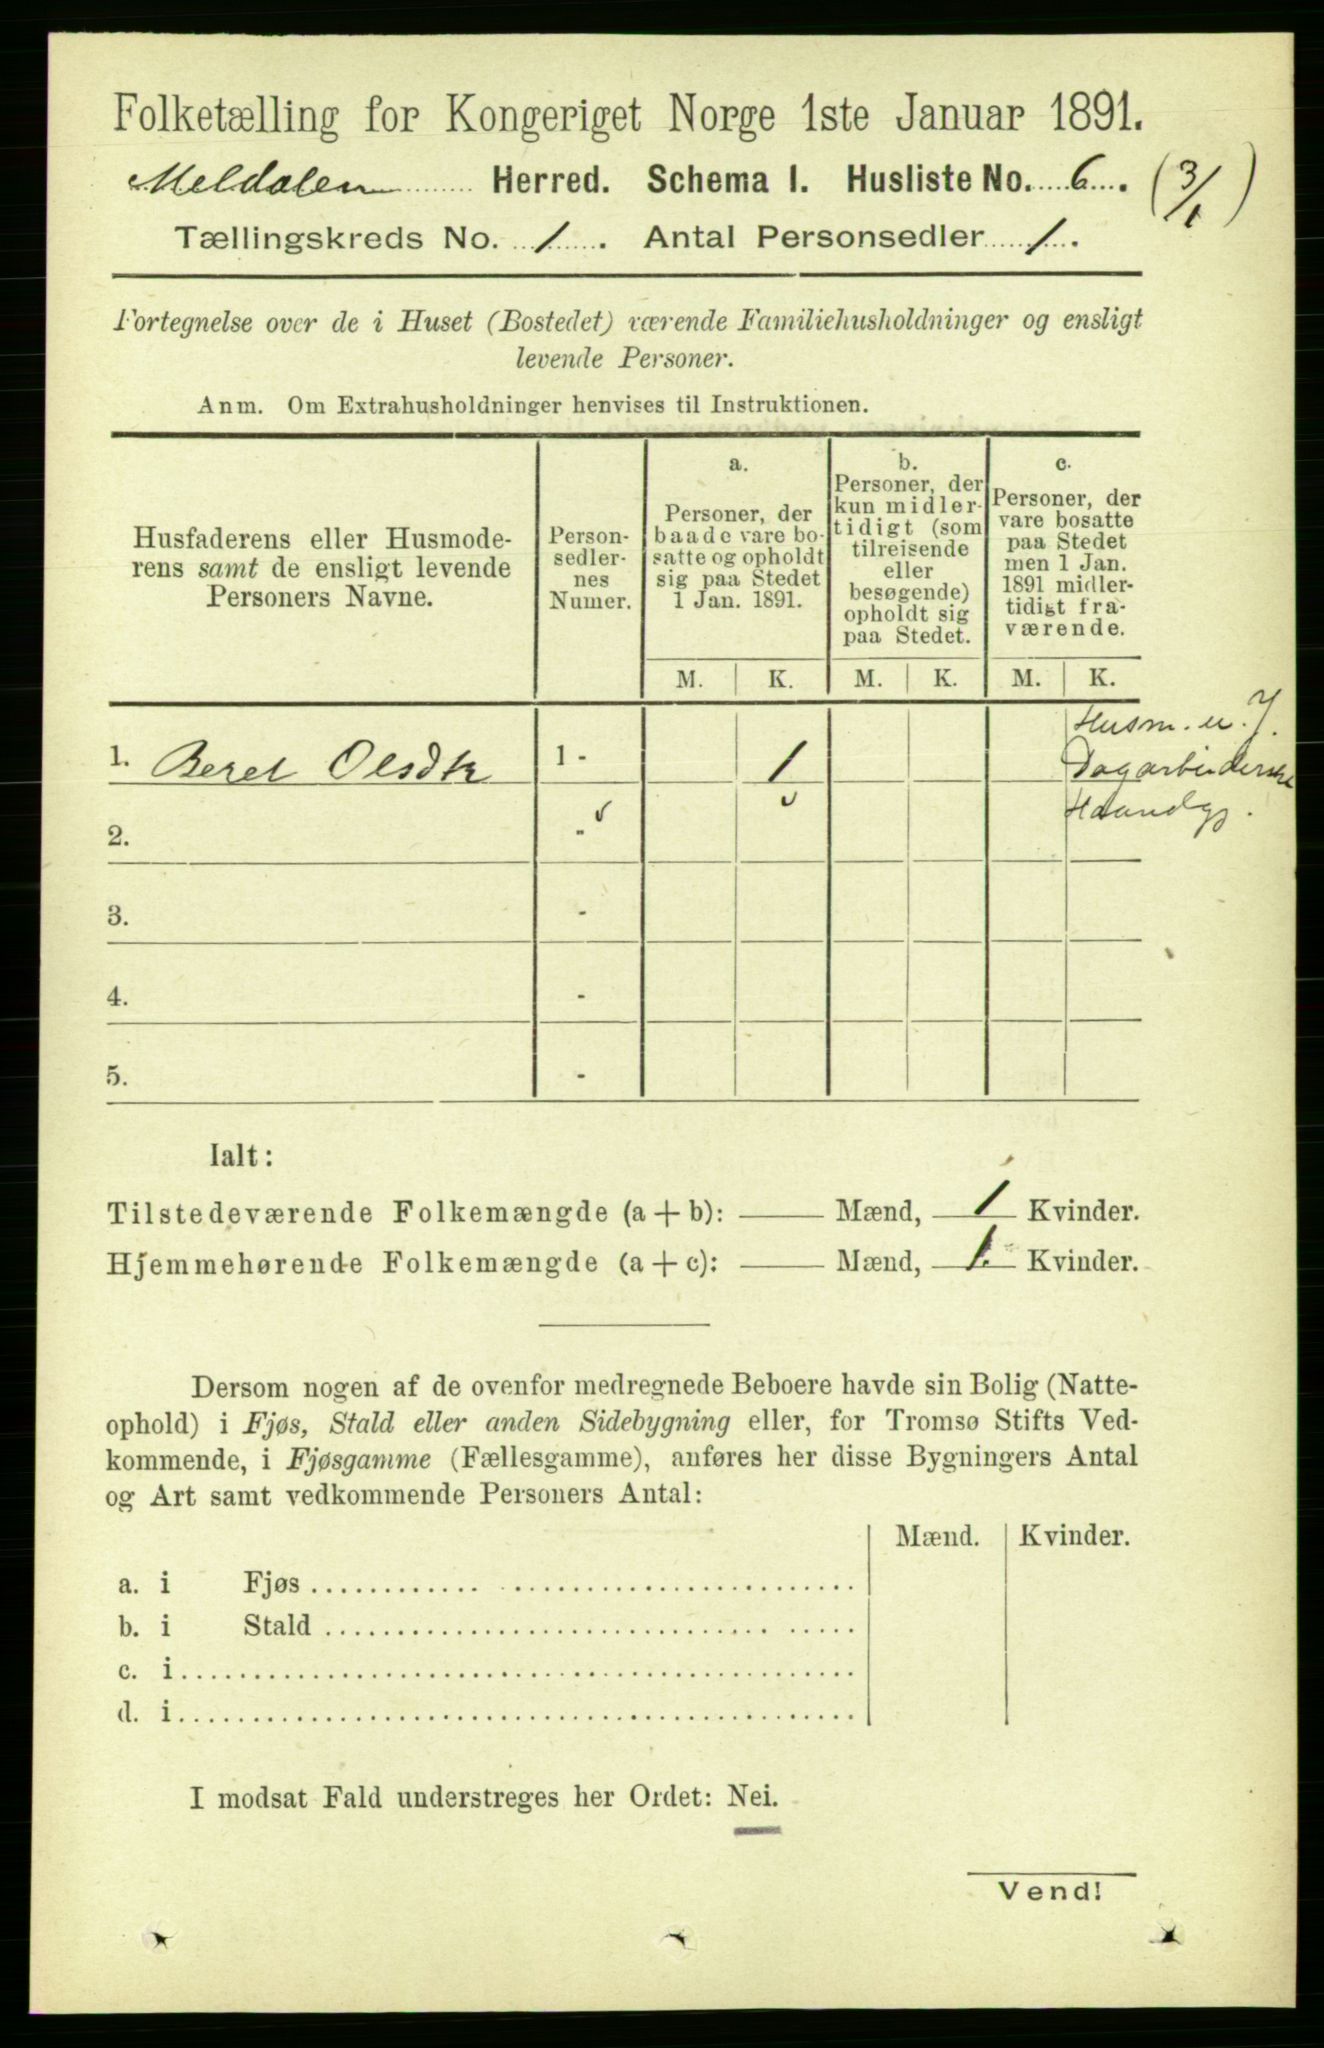 Folketælling for Kongeriget Norge 1ste Januar 1891.
Meldalen Herred. Schema I. Husliste No. 6. (3/1)
Tællingskreds No. 1. Antal Personsedler 1.
Fortegnelse over de i Huset (Bostedet) værende Familiehusholdninger og ensligt
levende Personer.
Anm. Om Extrahusholdninger henvises til Instruktionen.
Husfaderens eller Husmode-
rens samt de ensligt levende
Personers Navne.
Person-
sedler-
nes
Numer.
a.
Personer, der
baade vare bo-
satte og opholdt
sig paa Stedet
1 Jan. 1891.
b.
Personer, der
kun midler-
tidigt (som
tilreisende
eller
besøgende)
opholdt sig
paa Stedet.
c.
Personer, der
vare bosatte
paa Stedet
men 1 Jan.
1891 midler-
tidigt fra-
værende.
M. K. M. K. M. K.
Husm. u. J.
1. Beret Olsdtr 1 - 1 Dagarbeiderske
Haandgj.
2. -
3. -
4. -
5. -
Ialt:
Tilstedeværende Folkemængde (a + b): Mænd, 1 Kvinder.
Hjemmehørende Folkemængde (a + c): Mænd, 1. Kvinder.
Dersom nogen af de ovenfor medregnede Beboere havde sin Bolig (Natte-
ophold) i Fjøs, Stald eller anden Sidebygning eller, for Tromsø Stifts Ved-
kommende, i Fjøsgamme (Fællesgamme), anføres her disse Bygningers Antal
og Art samt vedkommende Personers Antal:
Mænd. Kvinder.
a. i Fjøs
b. i Stald
c. i
d. i
I modsat Fald understreges her Ordet: Nei.
Vend!